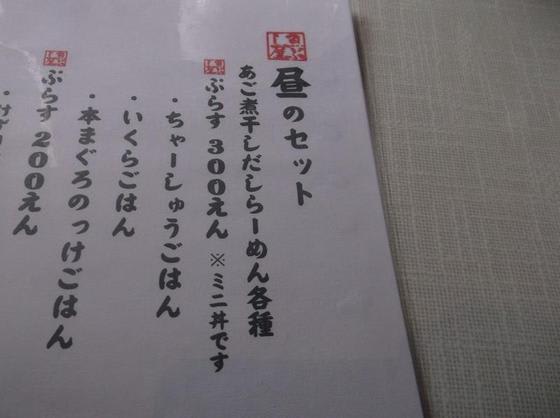 昼のセット
あご煮干しだしらーめん各種
ぷらす 300えん ※ミニ丼です
・ちゃーしゅうごはん
・いくらごはん
・本まぐろのっけごはん
ぷらす 200えん